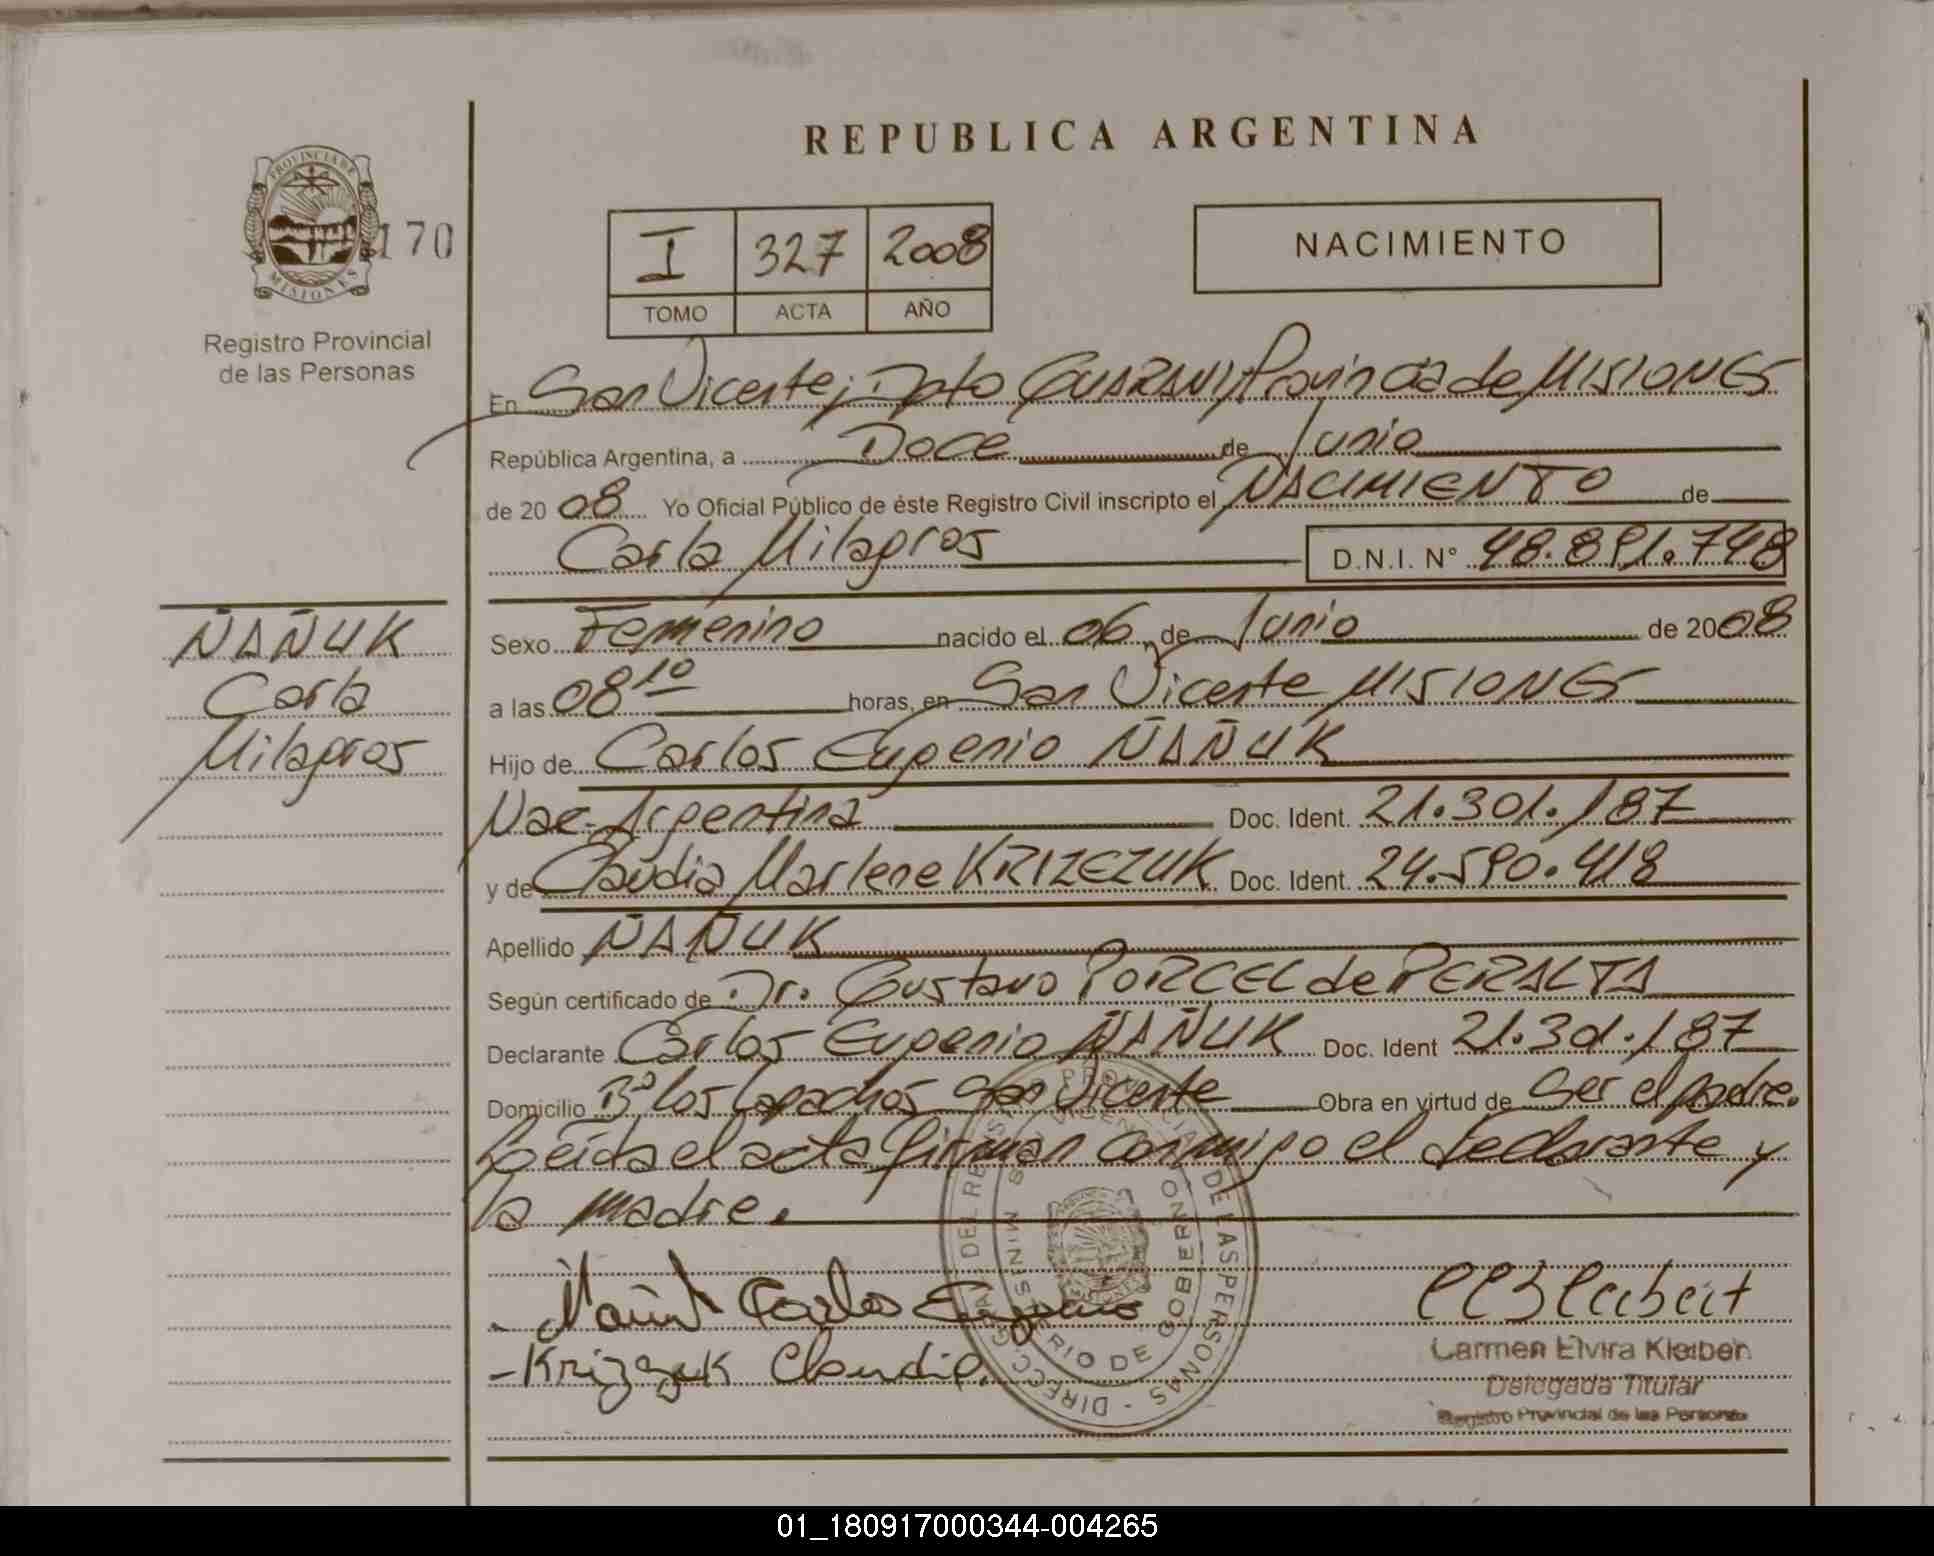 REPUBLICA ARGENTINA
PROVINCIA DE
MISIONES
170
Registro Provincial
de las Personas
I 327 2008
TOMO ACTA AÑO
NACIMIENTO
En San Vicente; Dpto GUARANI, Provincia de MISIONES
República Argentina, a Doce de Junio
de 2008 Yo Oficial Público de éste Registro Civil inscripto el NACIMIENTO de
Carla Milagros D.N.I. N° 48.891.748
ÑAÑUK
Carla
Milagros
Sexo Femenino nacido el 06 de Junio de 2008
a las 08 10 horas, en San Vicente MISIONES
Hijo de Carlos Eugenio ÑAÑUK
Nac. Argentina Doc. Ident. 21.301.187
y de Claudia Marlene KRIZEZUK Doc. Ident. 24.590.418
Apellido ÑAÑUK
Según certificado de Dr. Gustavo PORCEL de PERALTA
Declarante Carlos Eugenio ÑAÑUK Doc. Ident 21.301.187
Domicilio B° los Lapachos San Vicente Obra en virtud de Ser el padre.
Leída el acta firman conmigo el declarante y
la madre.
Carlos Eugenio
- Krizezuk Claudia
Carmen Elvira Kleiber
Delegada Titular
Registro Provincial de las Personas
MINISTERIO DE GOBIERNO
01_180917000344-004265